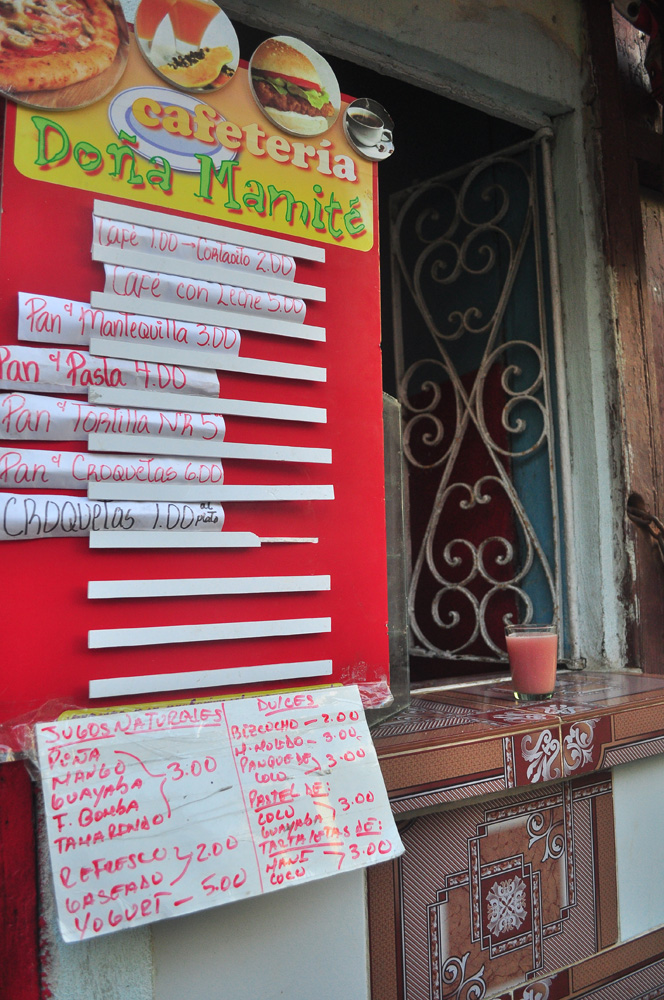 cafetería
Doña Mamité
Café 1.00 → Cortadito 2.00
Café con Leche 5.00
Pan d Mantequilla 3.00
Pan d Pasta 4.00
Pan d Tortilla N'R 5
Pan d Croquetas 6.00
CROQUETAS 1.00 al plato
JUGOS NATURALES
PIÑA
MANGO
GUAYABA
F. BOMBA
TAMARINDO
3.00
REFRESCO
GASEADO
2.00
YOGURT - 5.00
DULCES
BIZCOCHO - 2.00
3.00
PANQUE DE
COCO
3.00
PASTEL DE:
COCO
GUAYABA
3.00
TARTALETAS DE:
MANÍ
COCO
3.00